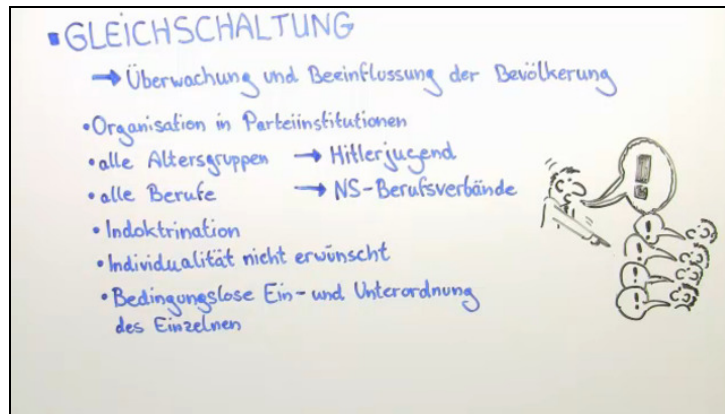 ▪ GLEICHSCHALTUNG
→ Überwachung und Beeinflussung der Bevölkerung
• Organisation in Parteiinstitutionen
• alle Altersgruppen → Hitlerjugend
• alle Berufe → NS-Berufsverbände
• Indoktrination
• Individualität nicht erwünscht
• Bedingungslose Ein- und Unterordnung
des Einzelnen
!
!
!
!
!